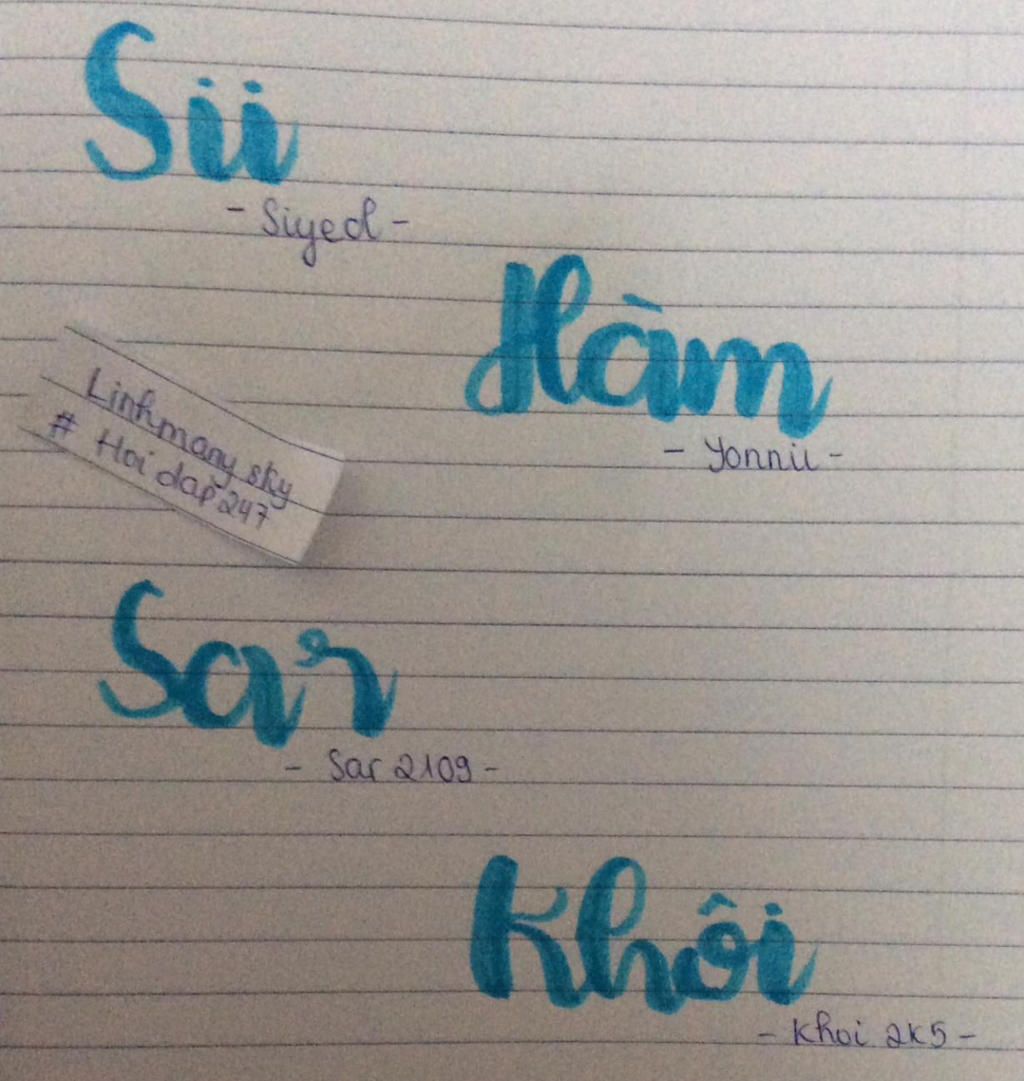 Sii
- Siyed -
Hàm
- Yonnii -
Linhmany sky
# Hoi dap 247
Sar
- Sar 2109 -
Khôi
- Khoi 2k5 -